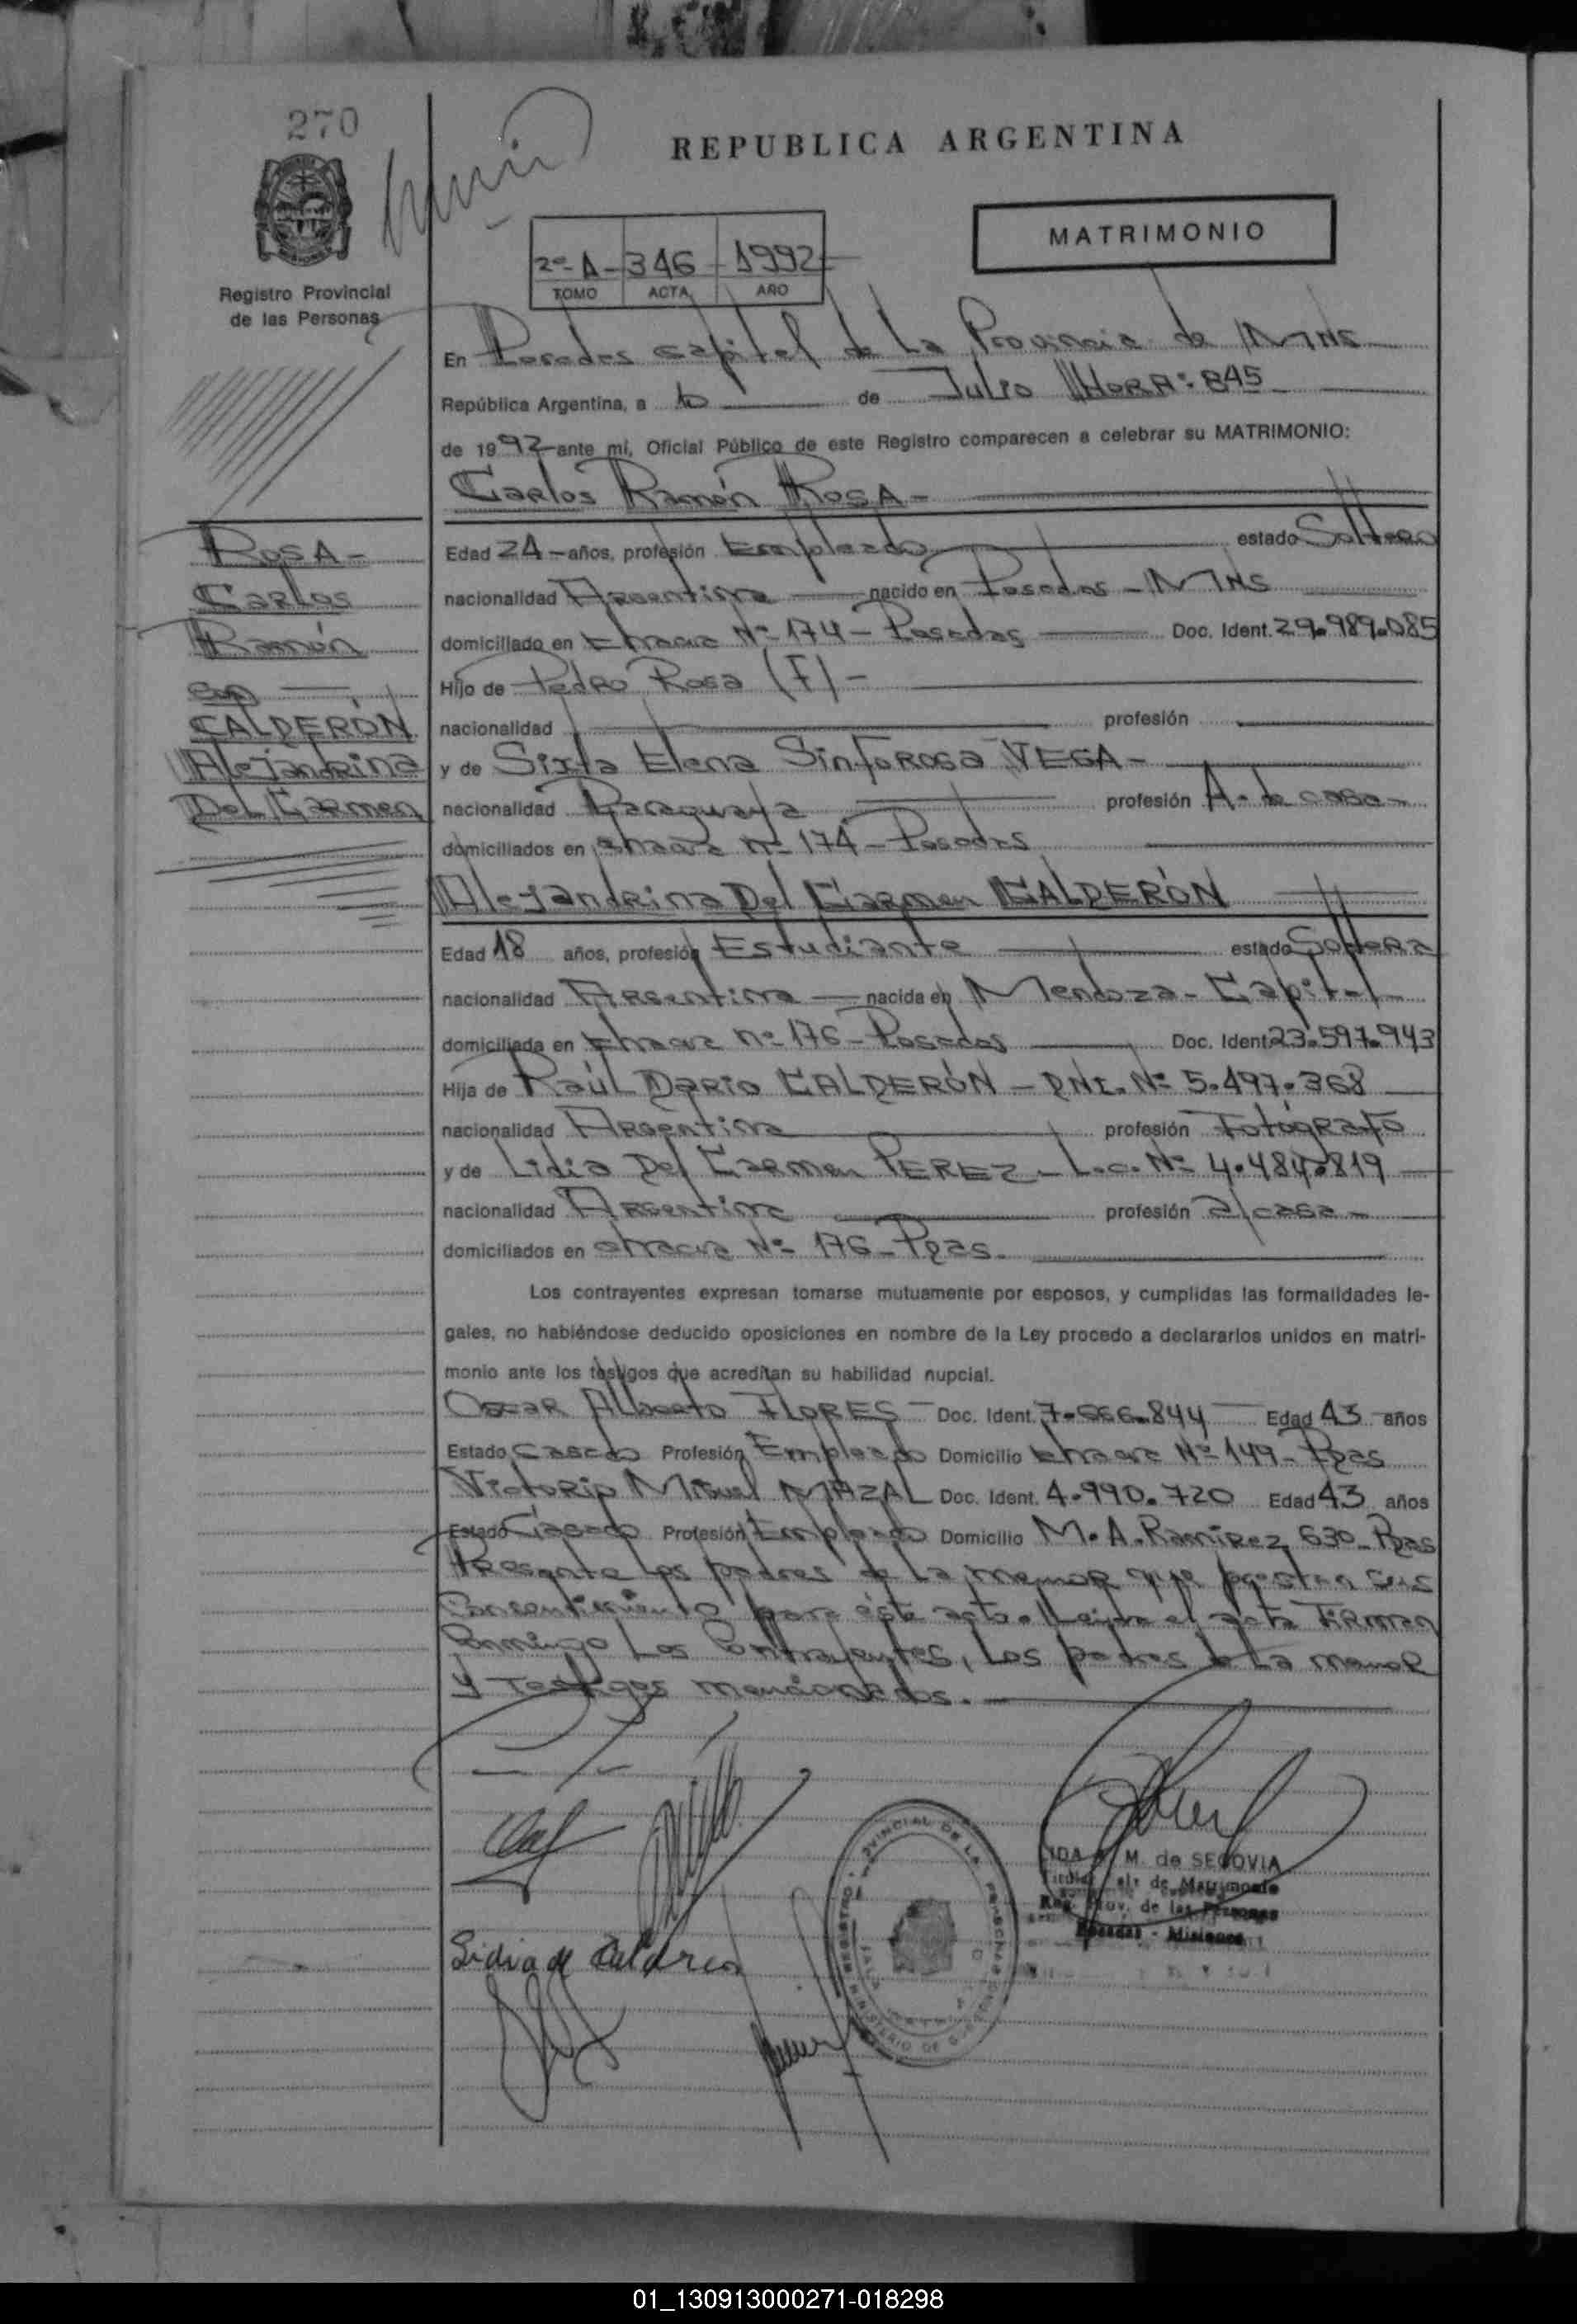 270
REPUBLICA ARGENTINA
MATRIMONIO
2º-A- 346 - 1992
TOMO ACTA AÑO
Registro Provincial
de las Personas
En Posadas capital de La Provincia de MNS
República Argentina, a de Julio HORA: 845
de 1992 ante mi, Oficial Público de este Registro comparecen a celebrar su MATRIMONIO:
Carlos Ramón ROSA-
ROSA-
Carlos
Ramón
con
CALDERÓN
Alejandrina
Del Carmen
Edad 24 - años, profesión Empleado estado Soltero
nacionalidad Argentina nacido en Posadas - MNS
domiciliado en Nº 174 - Posadas Doc. Ident. 29.989.085
Hijo de Pedro Rosa (F) -
nacionalidad profesión
y de Sixta Elena Sinforosa VEGA-
nacionalidad Paraguaya profesión A. de casa-
domiciliados en nº 174 - Posadas
Alejandrina Del Carmen CALDERÓN
Edad 18 años, profesión Estudiante estado Soltera
nacionalidad Argentina nacida en Mendoza - Capital
domiciliada en Nº 176 - Posadas Doc. Ident. 23.597.943
Hija de Raúl Dario CALDERÓN - DNI. Nº 5.497.368
nacionalidad Argentina profesión Fotógrafo
y de Lidia Del Carmen PEREZ - L.c. Nº 4.484.819
nacionalidad Argentina profesión a/casa -
domiciliados en Nº 176 - Pdas.
Los contrayentes expresan tomarse mutuamente por esposos, y cumplidas las formalidades le-
gales, no habiéndose deducido oposiciones en nombre de la Ley procedo a declararlos unidos en matri-
monio ante los testigos que acreditan su habilidad nupcial.
Oscar Alberto FLORES - Doc. Ident. Edad 43 años
Estado Casado Profesión Empleado Domicilio Nº 149 - Pdas
Victorio Miguel MAZAL Doc. Ident. 4.990.720 Edad 43 años
Estado Casado Profesión Empleado Domicilio M. A. Ramirez 630 - Pdas
Presente los padres de La menor que prestan sus
Consentimiento para éste acto. Leida el acta Firman
Conmigo Los Contrayentes, Los padres de La menor
y Testigos mencionados. -
Lidia de Calderon
M. de SEGOVIA
de Matrimonio
Reg. Prov. de las Personas
Posadas - Misiones
01_130913000271-018298